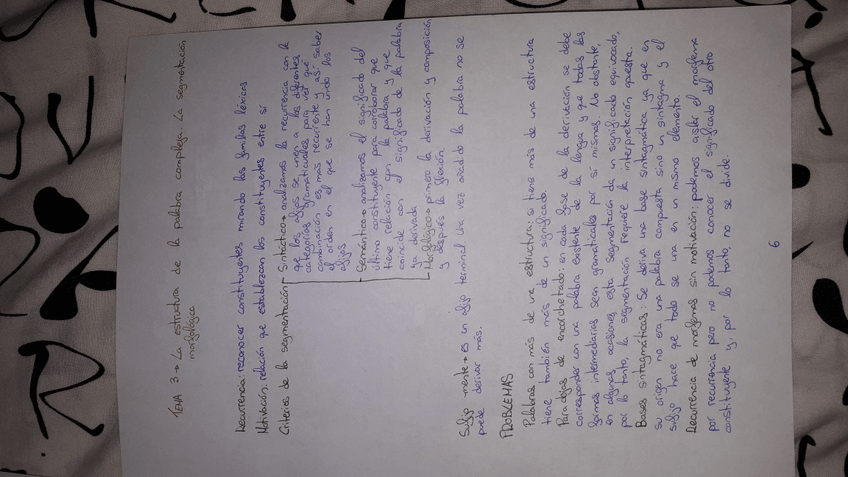 TEMA 3 → La estructura de la palabra compleja. La segmentación
morfológica
Recurrencia: reconocer constituyentes mirando las familias léxicas
Motivación: relación que establezcan los constituyentes entre sí
Criterios de la segmentación
Sintáctico → analizamos la recurrencia con la
que los afijos se unen a las diferentes
categorías gramaticales para ver qué
combinación es más recurrente y así saber
el orden en el que se han unido los
afijos
Semántico → analizamos el significado del
último constituyente para corroborar que
tiene relación con la palabra y que
coincide con el significado de la palabra
ya derivada
Morfológico → primero la derivación y composición
y después la flexión.
Sufijo -mente → es un afijo terminal. Una vez añadido la palabra no se
puede derivar más.
PROBLEMAS
Palabras con más de una estructura: si tiene más de una estructura
tiene también más de un significado
Paradojas de encorchetado: en cada fase de la derivación se debe
corresponder con una palabra existente de la lengua y que todas las
formas intermediarias sean gramaticales por sí mismas. No obstante,
en algunas ocasiones esta segmentación da un significado equivocado,
por lo tanto, la segmentación requiere la interpretación opuesta.
Bases sintagmáticas: Se deriva una base sintagmática ya que en
su origen no era una palabra compuesta sino un sintagma y el
sufijo hace que todo se una en un mismo elemento.
Recurrencia de morfemas sin motivación: podemos aislar el morfema
por recurrencia pero no podemos conocer el significado del otro
constituyente y, por lo tanto, no se divide.
6